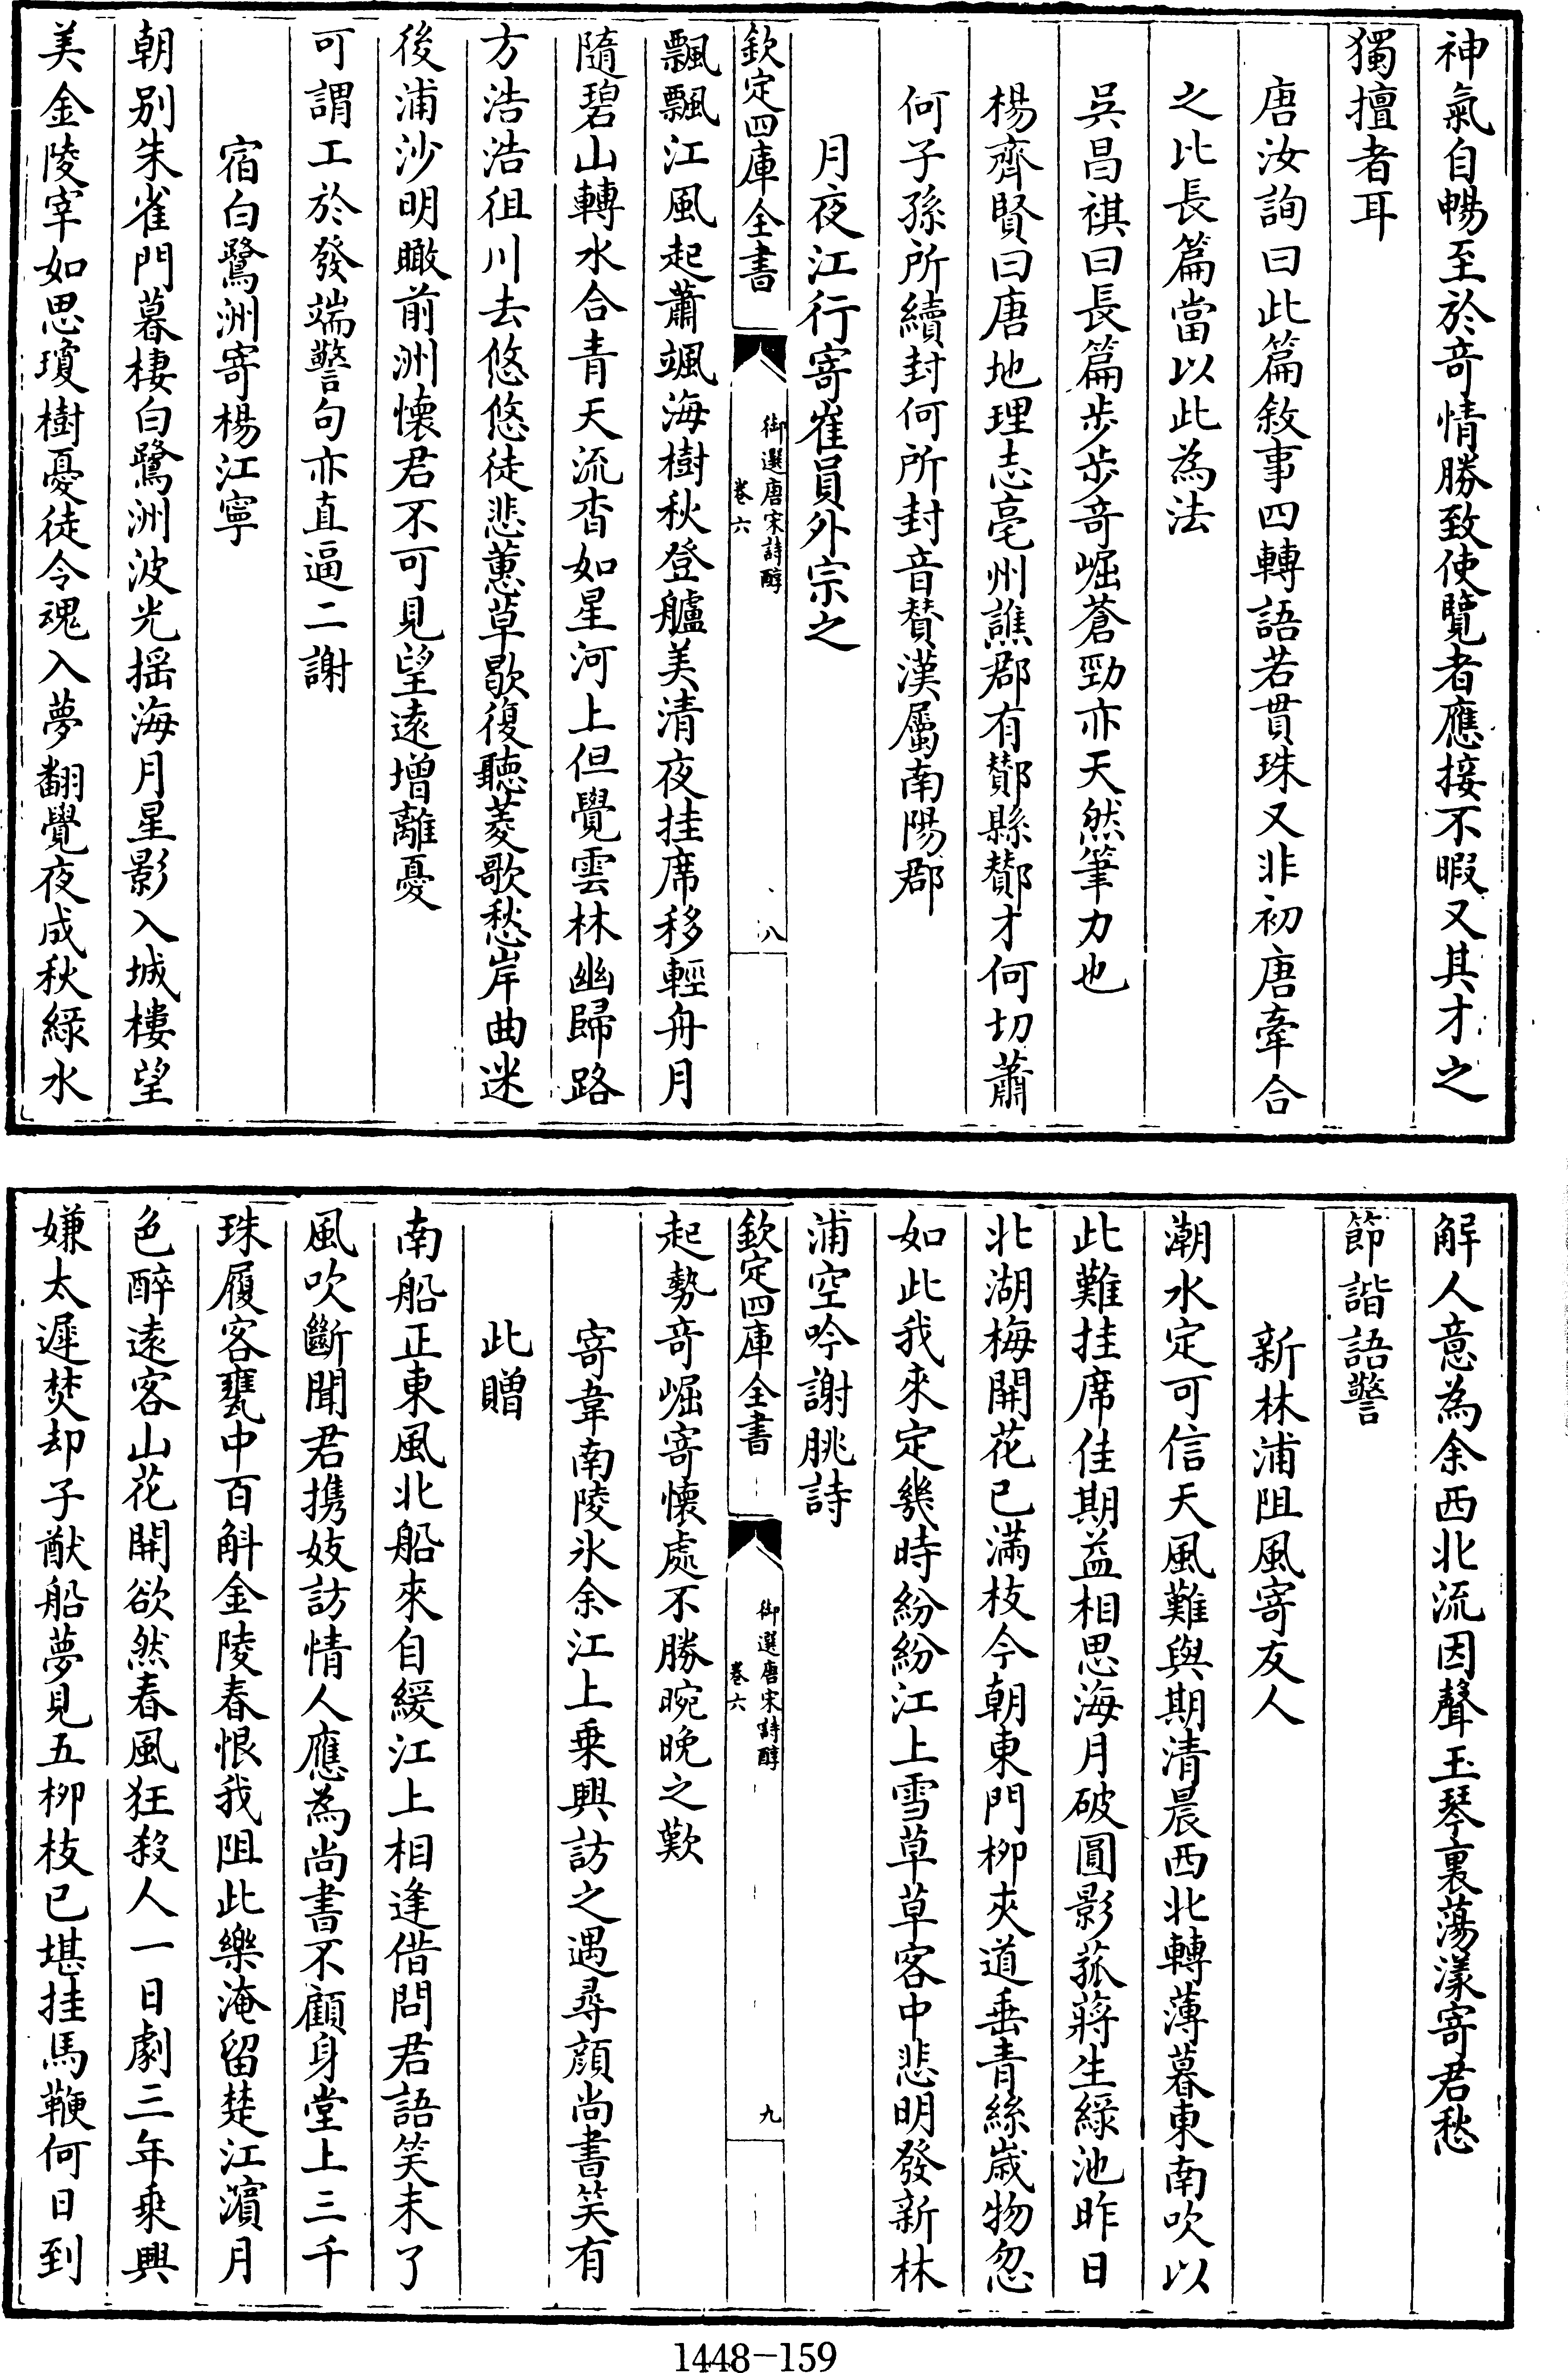 神氣自暢至於奇情勝致使覽者應接不暇又其才之
獨擅者耳
唐汝詢曰此篇敘事四轉語若貫珠又非初唐牽合
之比長篇當以此為法
吳昌祺曰長篇步步奇崛蒼勁亦天然筆力也
楊齊賢曰唐地理志亳州譙郡有酇縣酇才何切蕭
何子孫所續封何所封音賛漢屬南陽郡
月夜江行寄崔員外宗之
欽定四庫全書
御選唐宋詩醇
卷六
八
飄飄江風起蕭颯海樹秋登艫美清夜挂席移輕舟月
隨碧山轉水合青天流杳如星河上但覺雲林幽歸路
方浩浩徂川去悠悠徒悲蕙草歇復聽菱歌愁岸曲迷
後浦沙明瞰前洲懷君不可見望遠增離憂
可謂工於發端警句亦直逼二謝
宿白鷺洲寄楊江寧
朝别朱雀門暮棲白鷺洲波光揺海月星影入城樓望
美金陵宰如思瓊樹憂徒令魂入夢翻覺夜成秋緑水
解人意為余西北流因聲玉琴裏蕩漾寄君愁
節諧語警
新林浦阻風寄友人
潮水定可信天風難與期清晨西北轉薄暮東南吹以
此難挂席佳期益相思海月破圓影菰蔣生緑池昨日
北湖梅開花已滿枝今朝東門柳夾道垂青絲歲物忽
如此我來定幾時紛紛江上雪草草客中悲明發新林
浦空吟謝朓詩
欽定四庫全書
御選唐宋詩醇
卷六
九
起勢奇崛寄懷處不勝晼晚之歎
寄韋南陵氷余江上乗興訪之遇尋顔尚書笑有
此贈
南船正東風北船來自緩江上相逢借問君語笑未了
風吹斷聞君携妓訪情人應為尚書不顧身堂上三千
珠履客甕中百斛金陵春恨我阻此樂淹留楚江濵月
色醉遠客山花開欲然春風狂殺人一日劇三年乗興
嫌太遲焚却子猷船夢見五栁枝已堪挂馬鞭何日到
1448-159